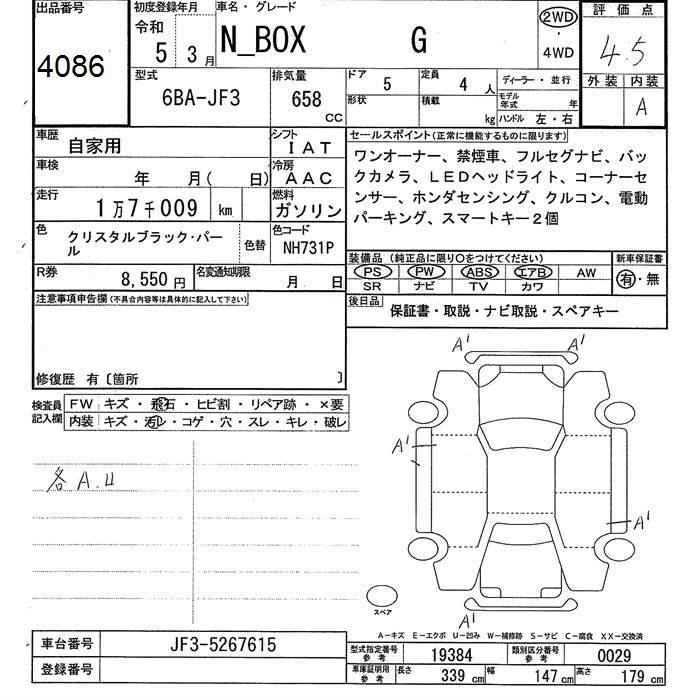 出品番号
4086
初度登録年月
令和
5 3月
車名・グレード
N_BOX G
2WD
・
4WD
評価点
4.5
外装 内装
A
型式
6BA-JF3
排気量
658
CC
ドア
5
定員
4 人
形状
積載
kg
ディーラー・並行
モデル年式 年
ハンドル 左・右
車歴
自家用
シフト
IAT
車検
年 月( 日)
冷房
AAC
走行
1万7千009 km
燃料
ガソリン
色
クリスタルブラック・パール
色替
色コード
NH731P
R券
8,550円
名変通知期限
月 日
セールスポイント(正常に機能するものに限ります)
ワンオーナー、禁煙車、フルセグナビ、バッ
クカメラ、LEDヘッドライト、コーナーセ
ンサー、ホンダセンシング、クルコン、電動
パーキング、スマートキー2個
装備品 (純正品に限り○をつけてください)
PS PW ABS エアB AW
SR ナビ TV カワ
新車保証書
有・無
後日品
保証書・取説・ナビ取説・スペアキー
注意事項申告欄(不具合内容等は具体的に記入して下さい)
修復歴 有〔箇所 〕
検査員
記入欄
FW キズ・飛石・ヒビ割・リペア跡・×要
内装 キズ・汚レ・コゲ・穴・スレ・キレ・破レ
各A.U
A'
A'
A'
A'
A'
スペア
A−キズ E−エクボ U−凹み W−補修跡 S−サビ C−腐食 XX−交換済
車台番号
JF3-5267615
登録番号
型式指定番号
参考
19384
類別区分番号
参考
0029
車庫証明用
参考
長さ 339 cm
幅 147 cm
高さ 179 cm